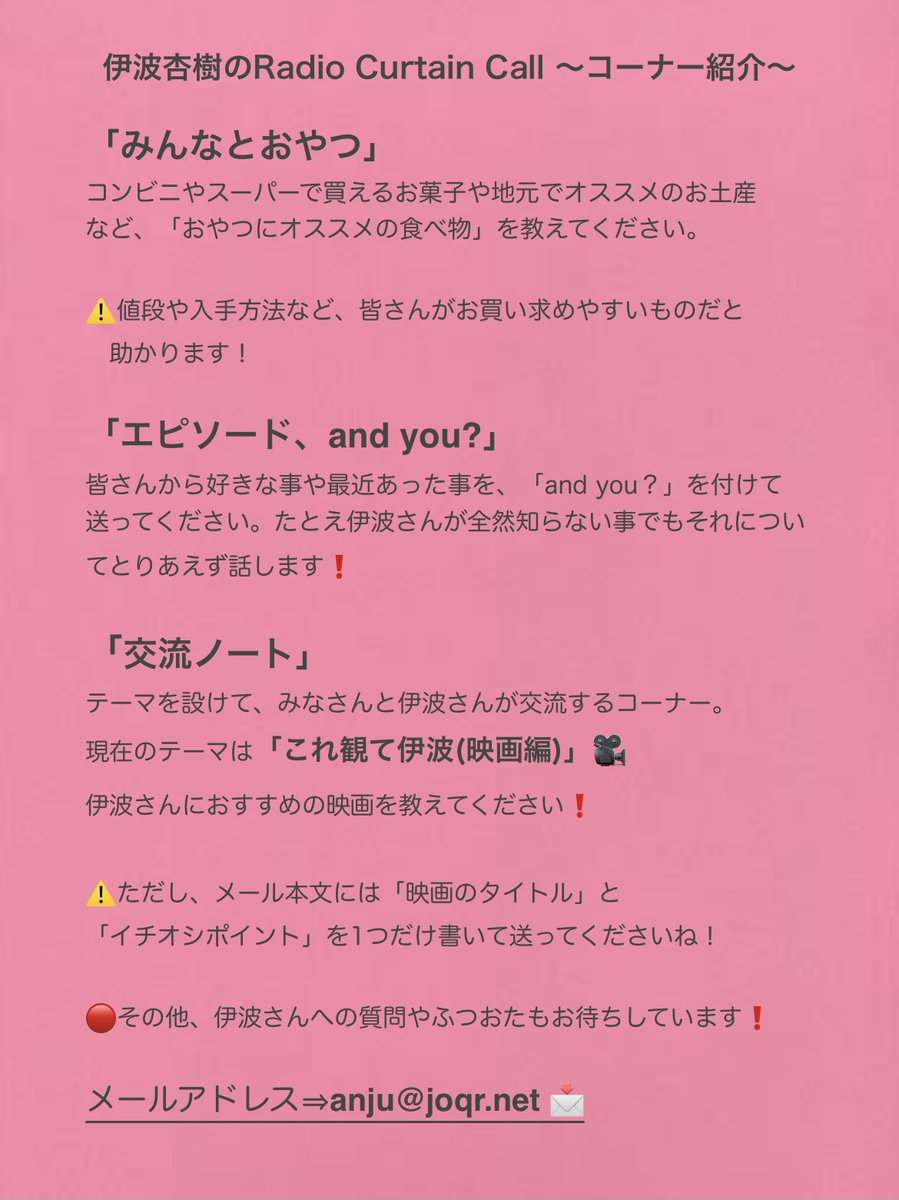 伊波杏樹のRadio Curtain Call 〜コーナー紹介〜
「みんなとおやつ」
コンビニやスーパーで買えるお菓子や地元でオススメのお土産
など、「おやつにオススメの食べ物」を教えてください。
⚠️値段や入手方法など、皆さんがお買い求めやすいものだと
助かります！
「エピソード、and you?」
皆さんから好きな事や最近あった事を、「and you？」を付けて
送ってください。たとえ伊波さんが全然知らない事でもそれについ
てとりあえず話します❗
「交流ノート」
テーマを設けて、みなさんと伊波さんが交流するコーナー。
現在のテーマは「これ観て伊波(映画編)」🎥
伊波さんにおすすめの映画を教えてください❗
⚠️ただし、メール本文には「映画のタイトル」と
「イチオシポイント」を1つだけ書いて送ってくださいね！
🔴その他、伊波さんへの質問やふつおたもお待ちしています❗
メールアドレス⇒anju@joqr.net 📩